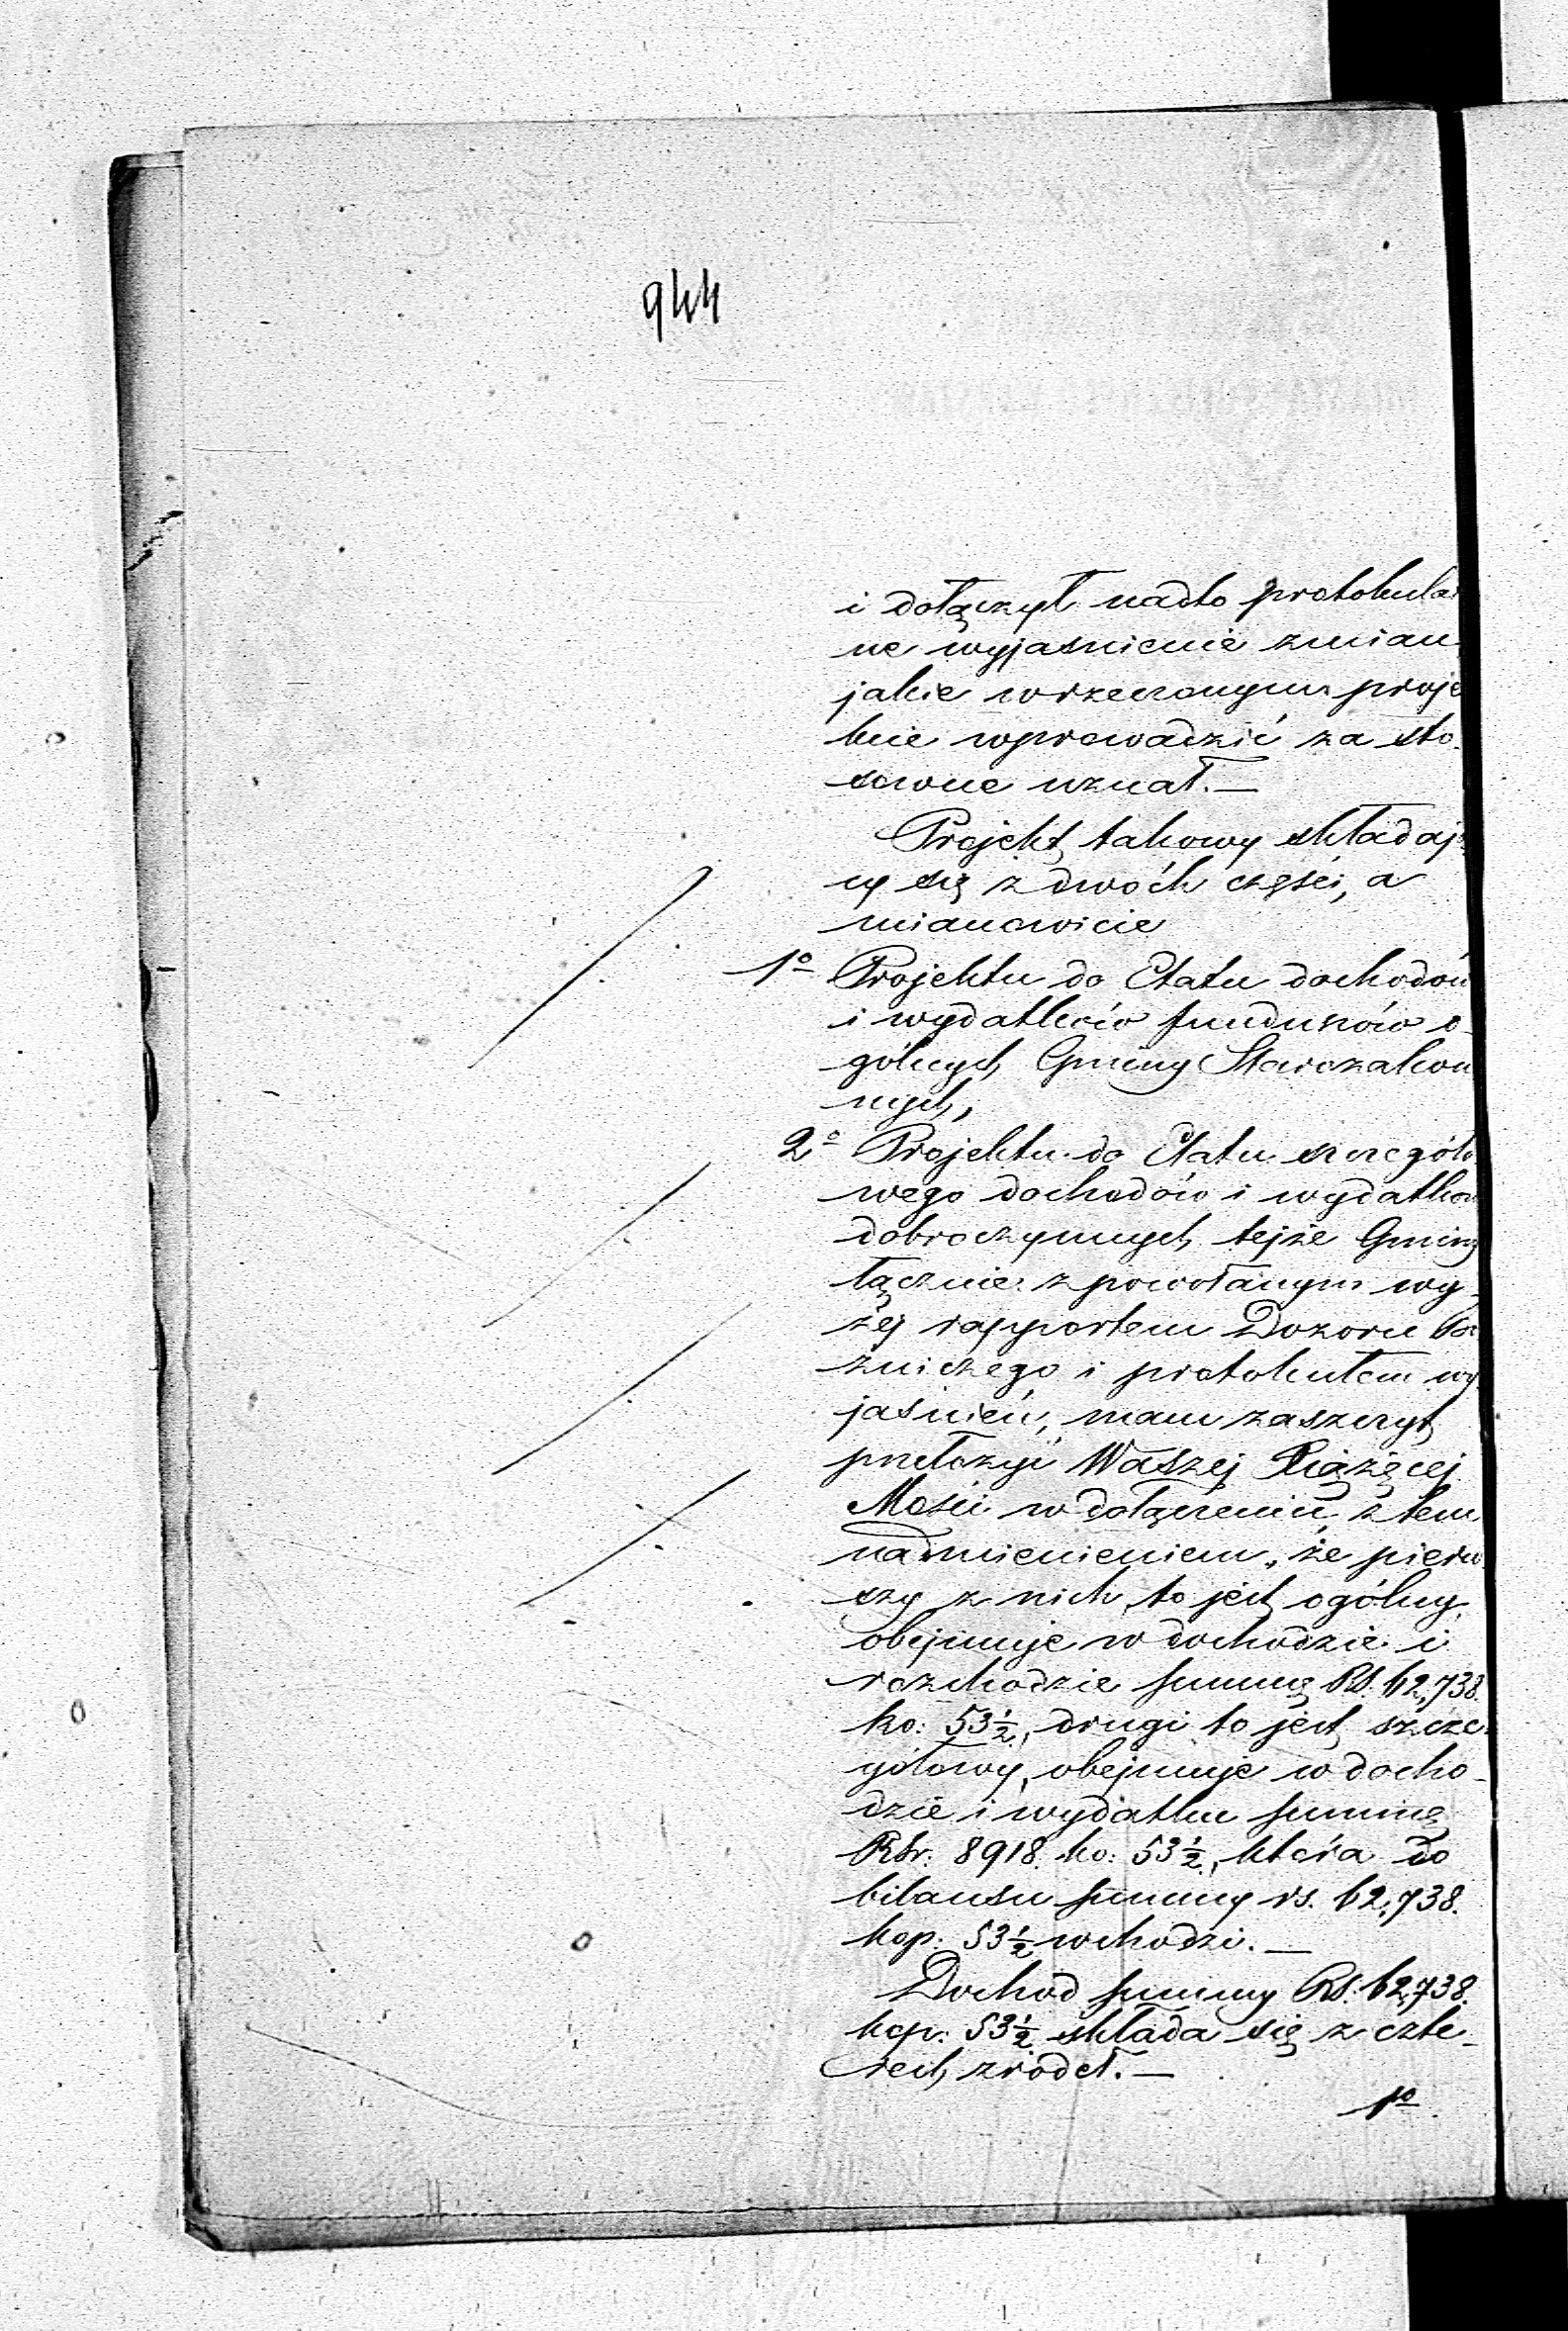 944
i dołączył nadto protokular
ne wyjasnienie zmian
jakie w rzeczonym proje
kcie wprowadzić za sto-
sowne uznał.—
Projekt takowy składają
cy się z dwóch części, a
mianowicie
1o Projektu do Etatu dochodów
i wydatków funduszów o-
gólnych Gminy Starozakon
nych,
2o Projektu do Etatu szczegóło
wego dochodów i wydatków
dobroczynnych tejże Gminy
łącznie z powołanym wy-
żej rapportem Dozoru Bo
żniczego i protokułem wy
jaśnień, mam zaszczyt
przełożyć Waszej Xiążęcej
Mości w dołączeniu z tem
nadmienieniem, że pierw
szy z nich to jest ogólny
obejmuje w dochodzie i
rozchodzie summę Rs. 62,738.
ko: 53½, drugi to jest szcze-
gółowy, obejmuje w docho-
dzie i wydatku summę
Rsr: 8918. ko: 53½, która do
bilansu summy rs. 62,738.
kop: 53½ wchodzi.—
Dochód summy Rs: 62,738.
kop: 53½ składa się z czte-
rech zrodeł.—
1o